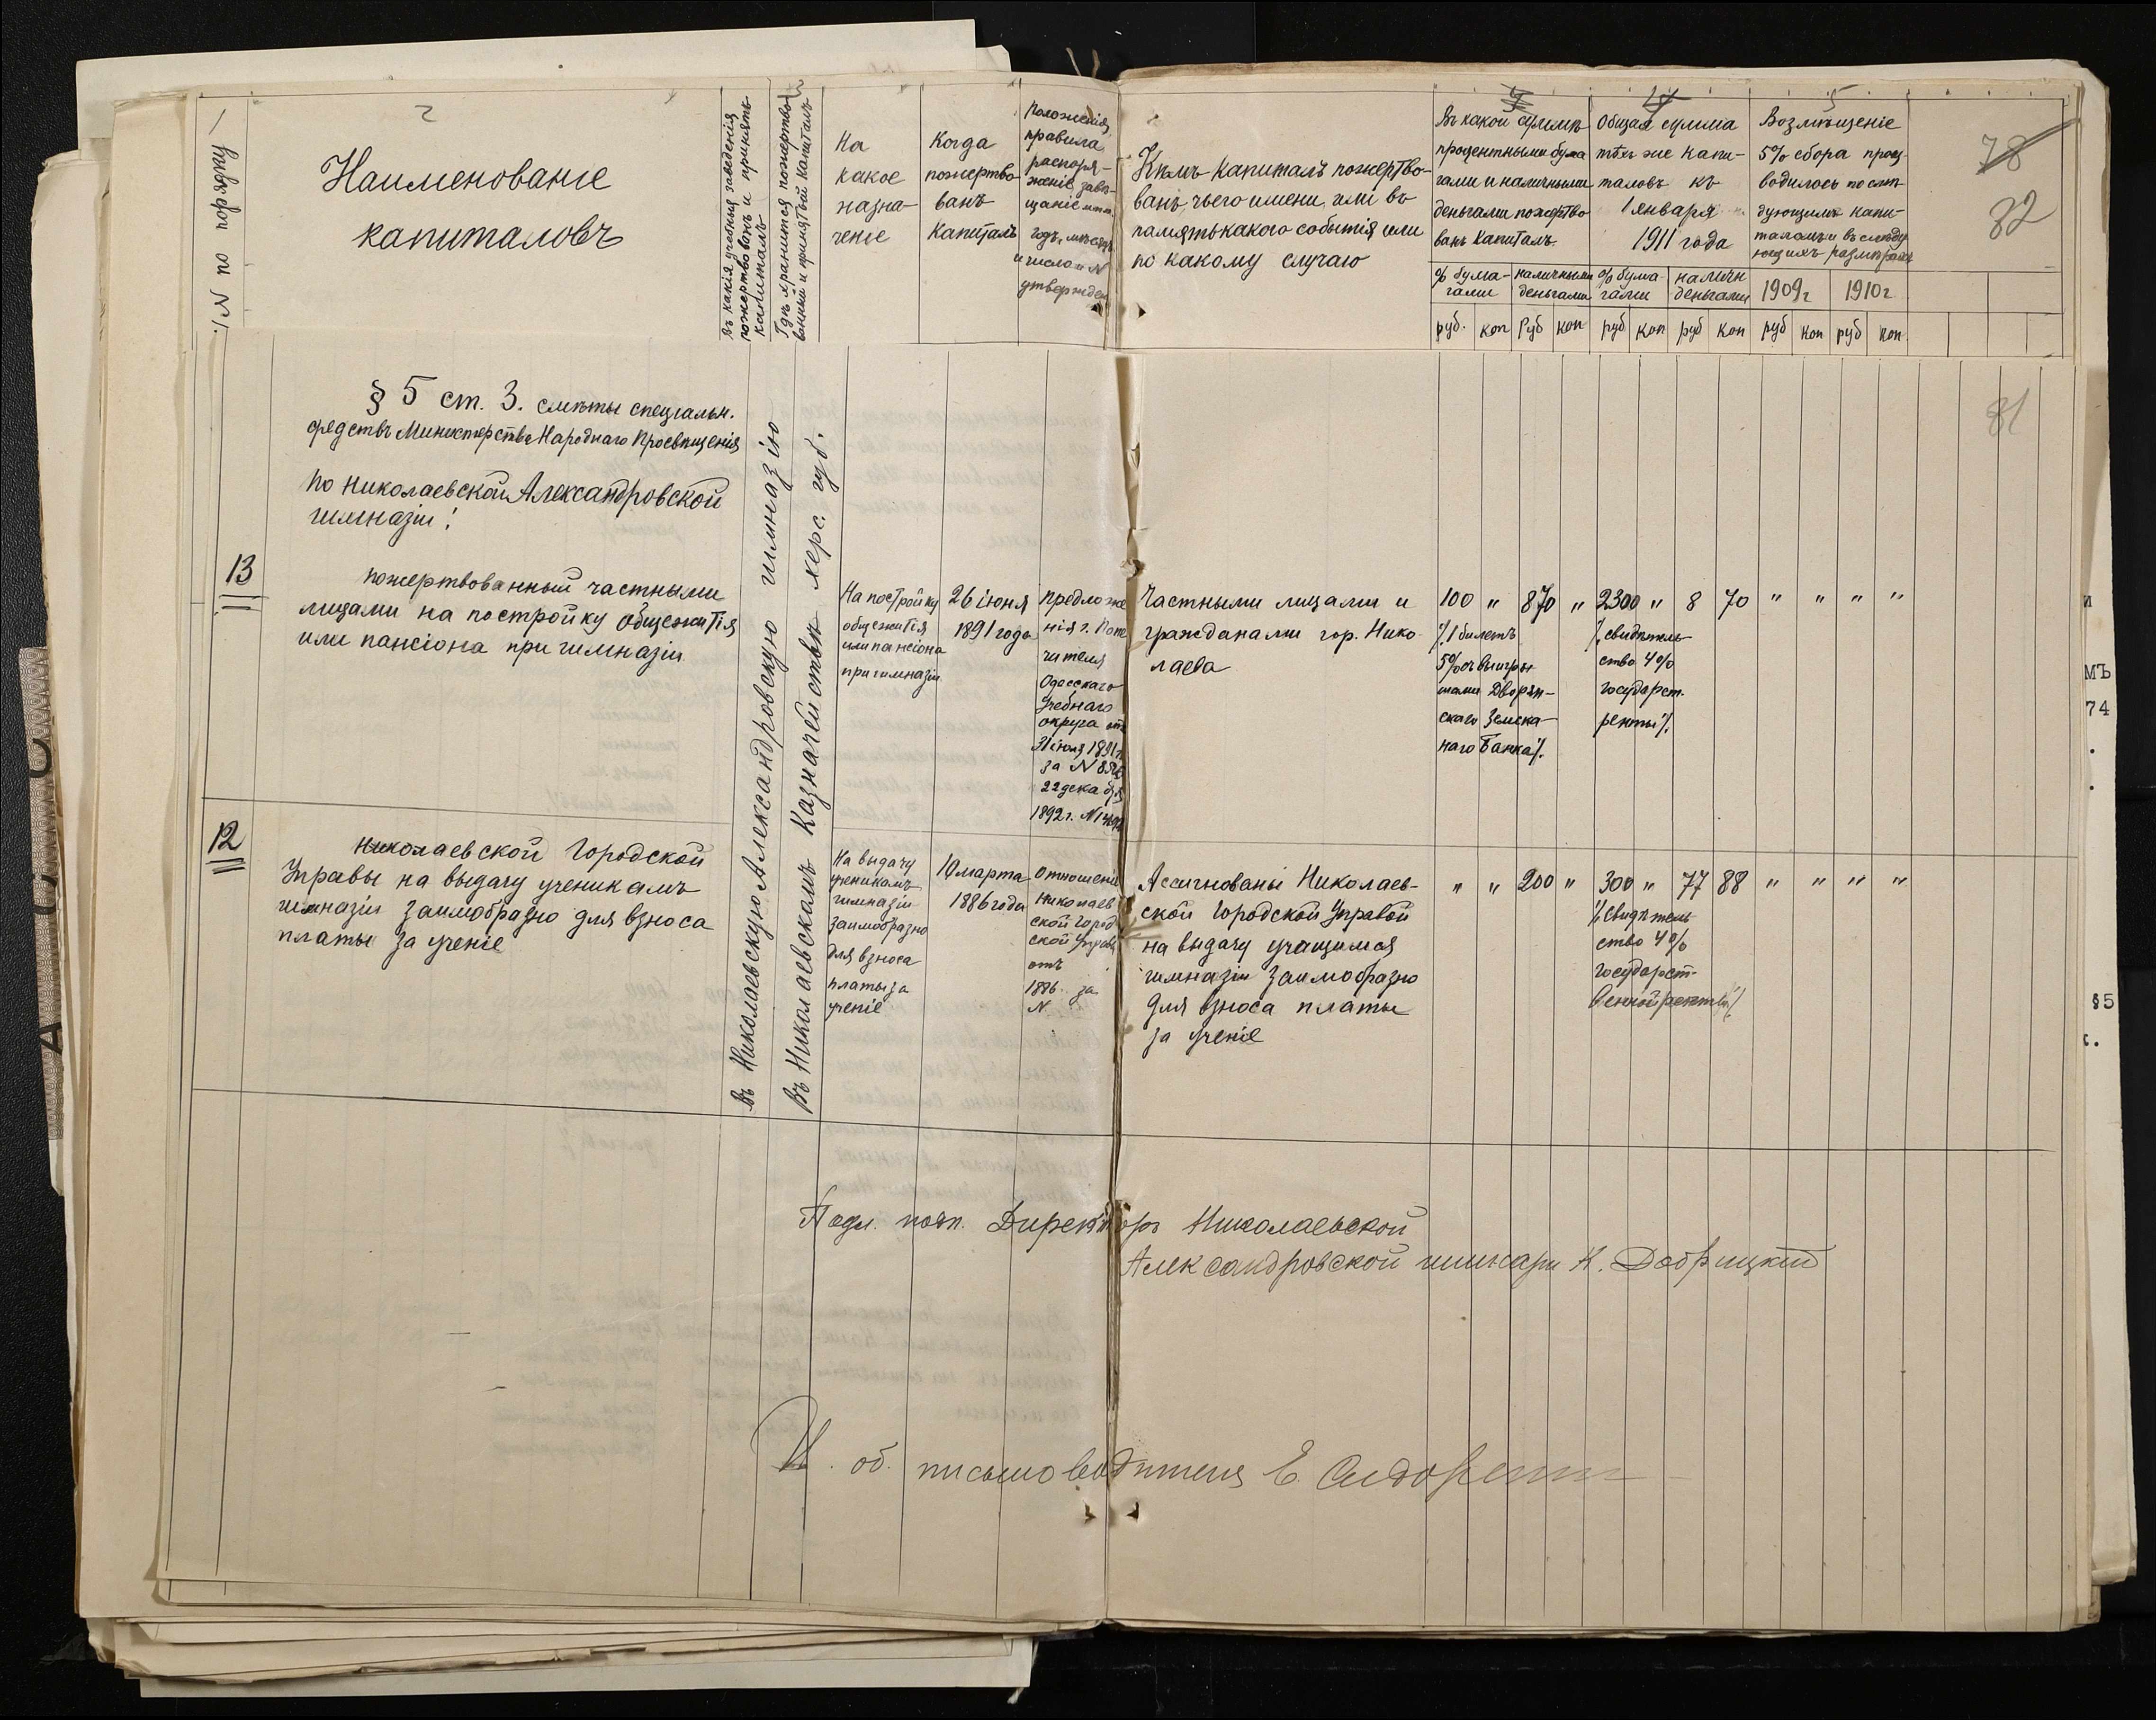 1
2
№ по порядку
Наименованіе
капиталовъ
Въ какія учебныя заведенія
пожертвованъ и принятъ
капиталъ
Гдѣ хранится пожертво-
ванный и принятый капиталъ
На
какое
назна-
ченіе
Когда
пожертво-
ванъ
капиталъ
Положенія,
правила
распоря-
женіе, завѣ-
щаніе
годъ, мѣсяцъ
и число и №
утвержден
Кѣмъ капиталъ пожертво-
ванъ, чьего имени, или въ
память какого событія или
по какому случаю
Въ какой суммѣ
процентными бума-
гами и наличными
деньгами пожертво-
ванъ капиталъ.
% бума-
гами
наличными
деньгами
4
Общая сумма
тѣхъ же капи-
таловъ къ
1 января
1911 года
% бума-
гами
наличн
деньгами
5
Возмѣщеніе
5% сбора произ-
водилось по слѣ-
дующимъ капи-
таламъ и въ слѣду-
ющихъ размѣрахъ
1909 г
1910 г
руб. коп руб коп руб коп руб коп руб коп руб коп.
78
82
81
§ 5 ст. 3. смѣты спеціальн.
средствъ Министерства Народнаго Просвѣщенія
По Николаевской Александровской
гимназіи:
Въ Николаевскую Александровскую гимназію
Въ Николаевскомъ Казначействѣ Херс. губ.
13
пожертвованный частными
лицами на постройку общежитія
или пансіона при гимназіи
На постройку
общежитія
или пансіона
при гимназіи
26 іюня
1891 года
Предложе
нія г. Попе
чителя
Одесскаго
Учебнаго
округа отъ
31 іюля 1891 г.
за №
22 декабря
1892 г. №
Частными лицами и
гражданами гор. Нико-
лаева
100 " 870 " 2300 " 8 70 " " " "
/. 1 билетъ
5% съ выигры-
шами Дворян-
скаго Земель-
наго Банка /.
/. свидѣтель-
ство 4%
государст.
ренты /.
12
Николаевской Городской
Управы на выдачу ученикамъ
гимназіи заимообразно для взноса
платы за ученіе
На выдачу
ученикамъ
гимназіи
заимообразно
для взноса
платы за
ученіе
10 марта
1886 года
Отношеніе
Николаев
ской Город
ской Управы
отъ
1886 за
№
Ассигнованы Николаев-
ской Городской Управой
на выдачу учащимся
гимназіи заимообразно
для взноса платы
за ученіе
" " 200 " 300 " 77 88 " " " "
/. свидѣтель-
ство 4%
государст-
венной ренты /.
Подл. подп. Директоръ Николаевской
Александровской гимназіи Н. Добрицкій
И. об. письмоводителя Е.
мъ
74
§5